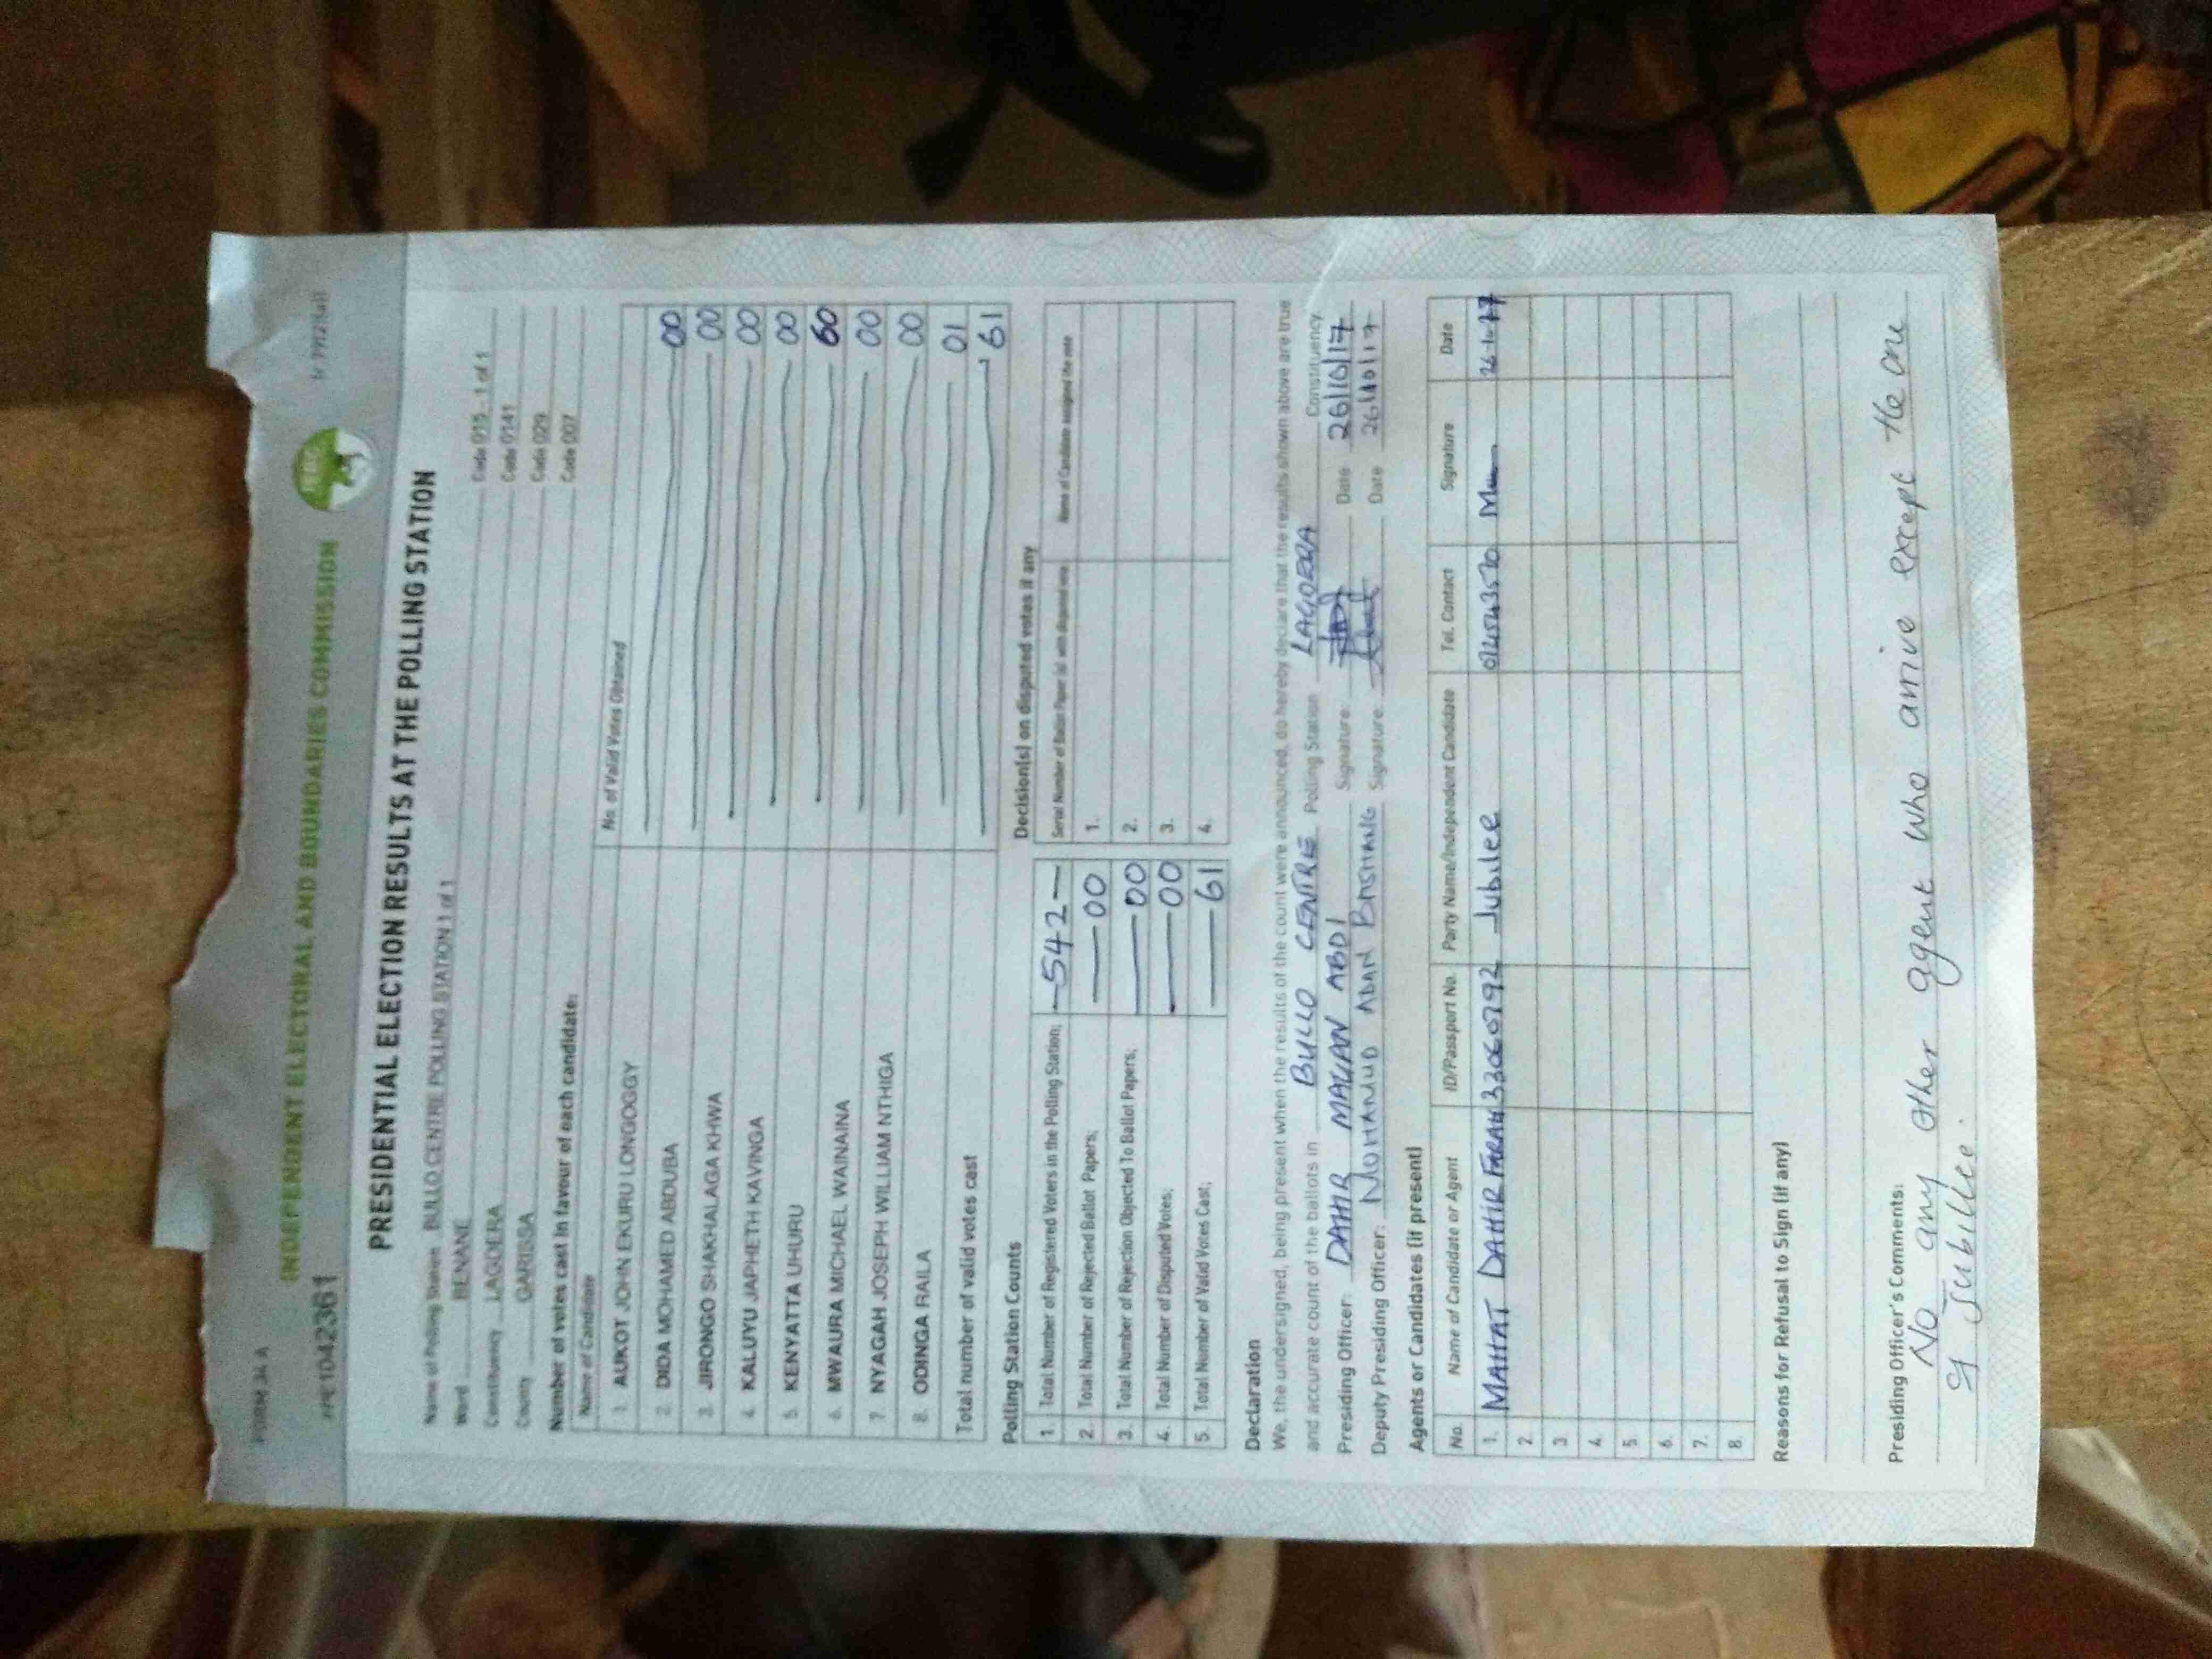 FORM 34 A
INDEPENDENT ELECTORAL AND BOUNDARIES COMMISSION
IEBC
PRESIDENTIAL ELECTION RESULTS AT THE POLLING STATION
Name of Polling Station BULLO CENTRE POLLING STATION 1 of 1 Code 015 - 1 of 1
Ward BENANE Code 0141
Constituency LAGDERA Code 029
County GARISSA Code 007
Number of votes cast in favour of each candidate:
Name of Candidate No. of Valid Votes Obtained
1. AUKOT JOHN EKURU LONGOGGY 00
2. DIDA MOHAMED ABDUBA 00
3. JIRONGO SHAKHALAGA KHWA 00
4. KALUYU JAPHETH KAVINGA 00
5. KENYATTA UHURU 60
6. MWAURA MICHAEL WAINAINA 00
7. NYAGAH JOSEPH WILLIAM NTHIGA 00
8. ODINGA RAILA 01
Total number of valid votes cast 61
Polling Station Counts Decision(s) on disputed votes if any
1. Total Number of Registered Voters in the Polling Station; 542 Serial Number of Ballot Paper (s) with disputed vote Name of Candidate assigned the vote
2. Total Number of Rejected Ballot Papers; 00 1.
3. Total Number of Rejection Objected To Ballot Papers; 00 2.
4. Total Number of Disputed Votes; 00 3.
5. Total Number of Valid Votes Cast; 61 4.
Declaration
We, the undersigned, being present when the results of the count were announced, do hereby declare that the results shown above are true
and accurate count of the ballots in BULLO CENTRE Polling Station LAGDERA Constituency
Presiding Officer: DAHIR MALIAN ABDI Signature: Date 26/10/17
Deputy Presiding Officer: MOHAMUD ADAN Signature: Date 26/10/17
Agents or Candidates (if present)
No. Name of Candidate or Agent ID/Passport No. Party Name/Independent Candidate Tel. Contact Signature Date
1. MAHAT DAHIR FARAH Jubilee
2.
3
4
5
6.
7.
8.
Reasons for Refusal to Sign (if any)
Presiding Officer's Comments:
No any other agent who arrive except the one
of Jubillee.